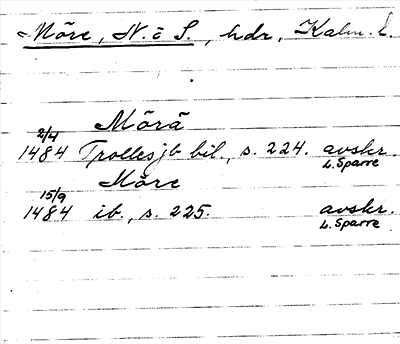 Möre, N. o S., hdr, Kalm. l.
Mörä
2/4
1484 Trolles jb bil., s. 224. avskr.
L. Sparre
Möre
15/9
1484 ib., s. 225. avskr.
L. Sparre